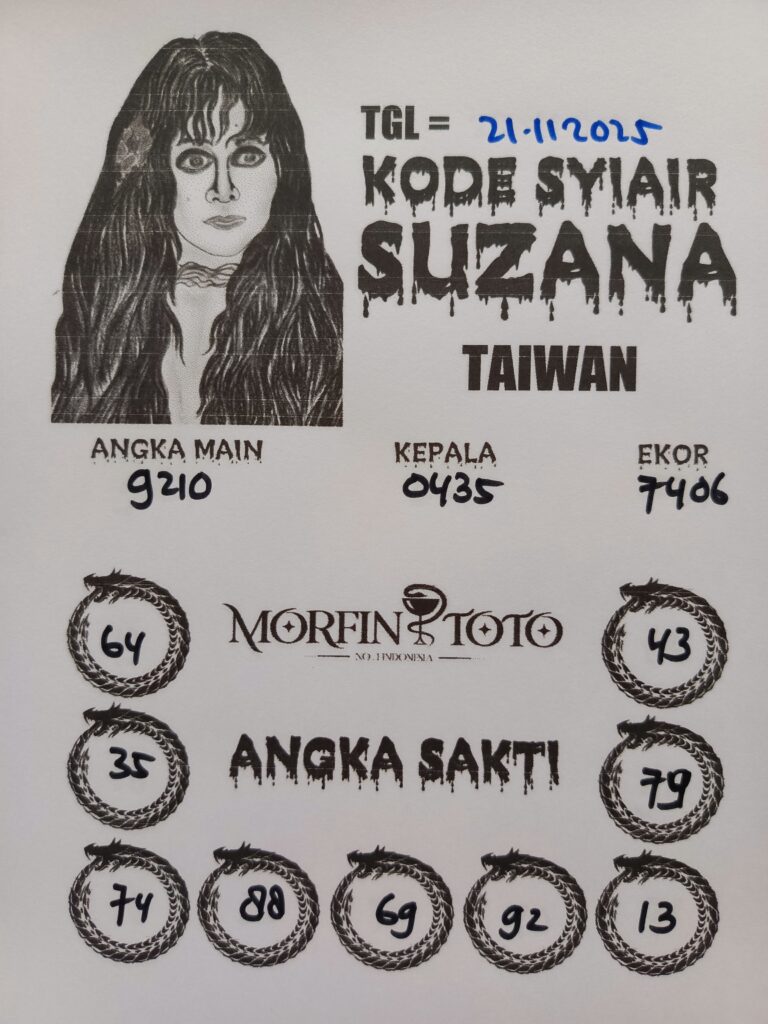 TGL = 21-11 2025
KODE SYIAIR
SUZANA
TAIWAN
ANGKA MAIN KEPALA EKOR
9210 0435 7406
MORFIN TOTO
NO.1 INDONESIA
64 43
ANGKA SAKTI
35 79
74 88 69 92 13